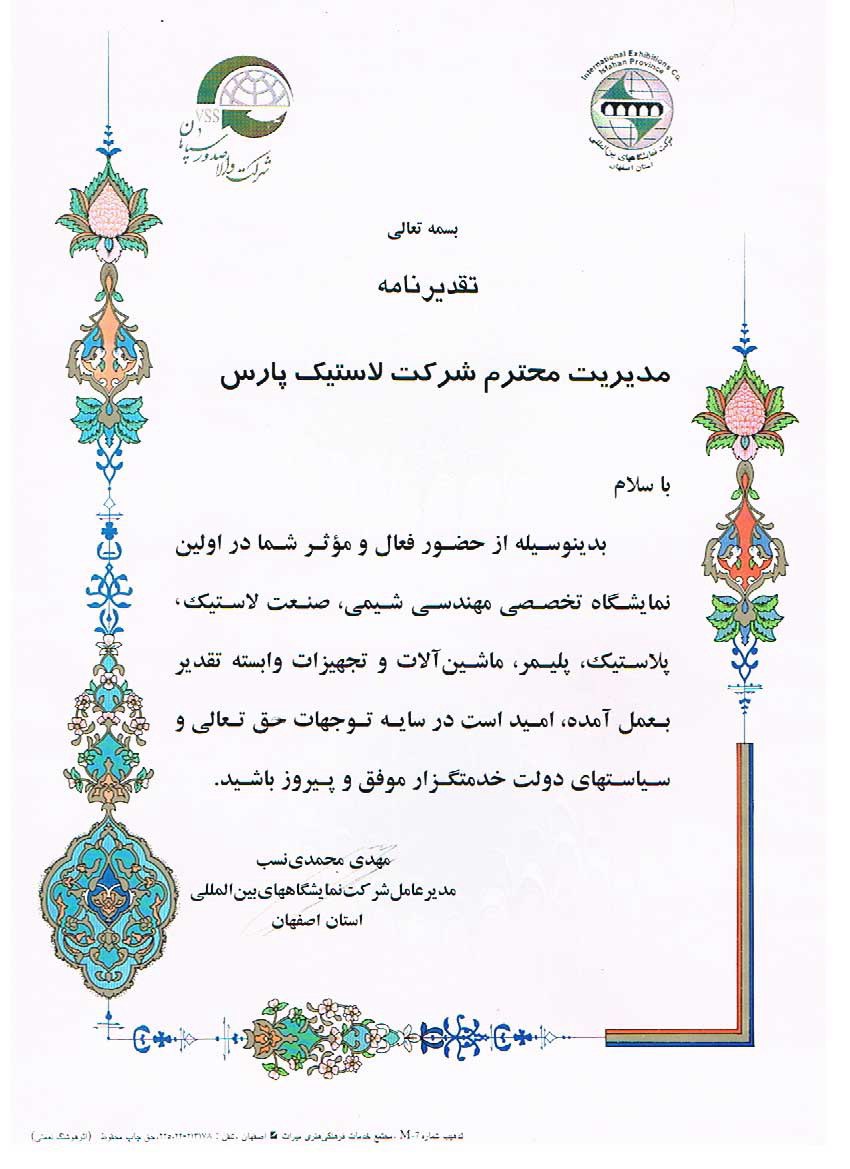 International Exhibitions Co.
Isfahan Province
شرکت نمایشگاههای بین‌المللی
استان اصفهان
VSS
شرکت والا صدور سپاهان
بسمه تعالی
تقدیرنامه
مدیریت محترم شرکت لاستیک پارس
با سلام
بدینوسیله از حضور فعال و مؤثر شما در اولین
نمایشگاه تخصصی مهندسی شیمی، صنعت لاستیک،
پلاستیک، پلیمر، ماشین‌آلات و تجهیزات وابسته تقدیر
بعمل آمده، امید است در سایه توجهات حق تعالی و
سیاستهای دولت خدمتگزار موفق و پیروز باشید.
مهدی محمدی‌نسب
مدیرعامل شرکت نمایشگاههای بین‌المللی
استان اصفهان
تذهیب شماره M-7 ، مجتمع خدمات فرهنگی هنری میراث اصفهان ، تلفن : حق چاپ محفوظ